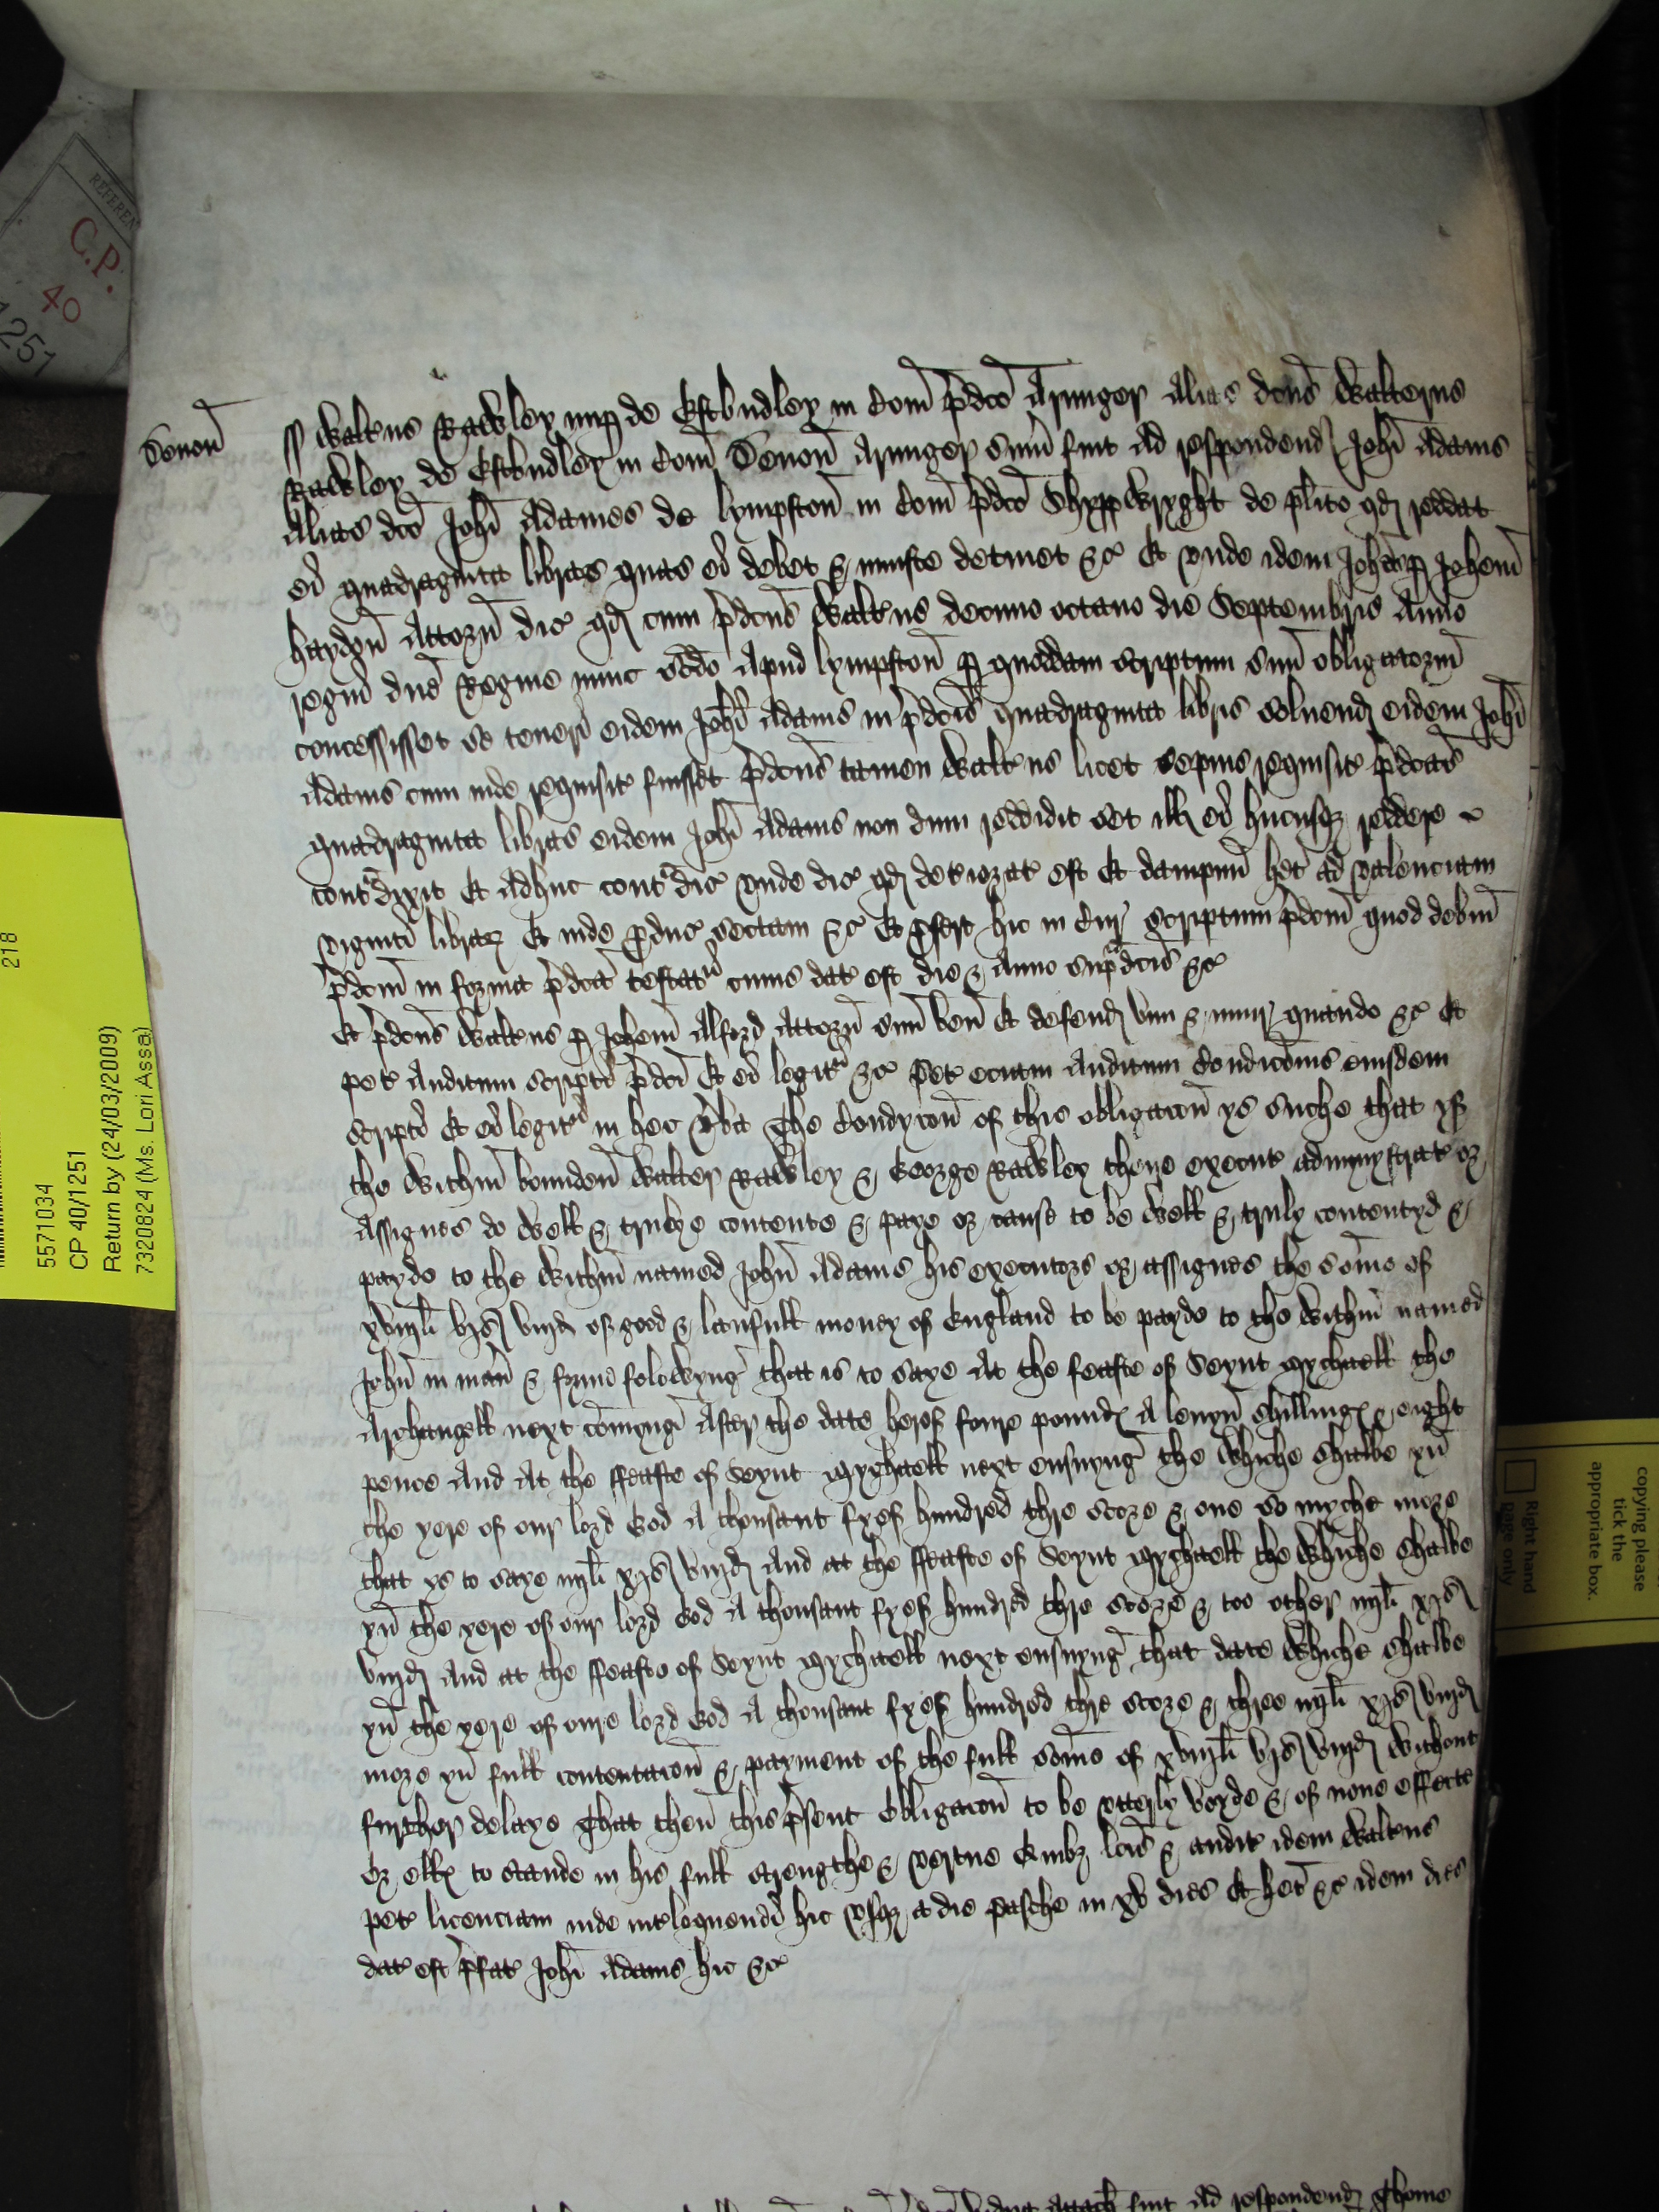 REFEREN
C.P.
40
1251
Devon̄
ss Walt'us Rawley nup de Estbudley in Com̄ p̄dc̄o Armiger Alias dc̄us Walterus
Rawley de Estbudley in Com̄ Devon̄ Armiger sum̄ fuit Ad respondend Joh̄i Adams
Alias dc̄o Joh̄i Adames de lympston̄ in Com̄ p̄dc̄o Shyppwryght de pl̄ito qd reddat
ei quadraginta libras quas ei debet & iniuste detinet &c Et unde idem Joh̄es p Joh̄em
haydon̄ Attorn̄ dic' qd cum p̄dc̄us Walt'us decimo octavo die Septembris Anno
regni dn̄e Regine nunc sc̄do Apud lympston̄ p quoddam scriptum suū obligatoriū
concessisset se teneri eidem Joh̄i Adams in p̄dc̄is quadraginta libris solvend eidem Joh̄i
Adams cum inde requisit' fuisset p̄dc̄us tamen Walt'us licet sepius requisit' p̄dc̄as
quadraginta libras eidem Joh̄i Adams non dum reddidit set ill' ei hucusq reddere
cont'dixit Et Adhuc cont'dic' Unde dic' qd det'iorat' est Et dampnū h̄et ad valenciam
viginti libraꝝ Et inde p̄duc' sectam &c Et p̄fert hic in Cur' scriptum p̄dc̄m quod debitū
p̄dc̄m in forma p̄dc̄a testat' cuius dat' est die & Anno sup̄dc̄is &c
Et p̄dc̄us Walt'us p Joh̄em Alford Attorn̄ suū ven̄ Et defend vim & iniur' quando &c Et
pet' Auditum scripti p̄dc̄i Et ei legit' &c Pet' eciam Auditum Condic̄onis eiusdem
scripti Et ei legit' in hec v̄ba The Condyc̄on of this obligac̄on ys suche that yf
the within̄ bounden̄ Walter Rawley & George Rawley there execut' admynystrat' or
Assignes do well & trulye contente & paye or cause to be well & truly contentyd &
payde to the within̄ named John̄ Adams his executors or assignes the som̄e of
xviijli vjs viijd of good & laufull money of England to be payde to the within̄ named
John̄ in man̄ & fr̄me folowyng that is to saye At the feaste of Seynt Mychaell the
Archangell next com̄yng After the date herof foure pound' A levyn̄ shilling' & eight
pence And At the ffeaste of Seynt Mychaell next ensuyng the whiche shalbe yn̄
the yere of our lord God A thousant fyef hundred thre score & one so myche more
that ys to saye iiijli xjs viijd And at the ffeaste of Seynt Mychaell the whiche shalbe
yn̄ the yere of our lord God A thousant fyef hundred thre score & too other iiijli xjs
viijd And at the ffeaste of Seynt Mychaell next ensuyng that date whiche shalbe
yn̄ the yere of oure lord God A thousant fyef hundred thre score & three iiijli xjs viijd
more yn̄ full contentac̄on & payment of the full som̄e of xviijli vjs viijd without
further delaye That then̄ this p̄sent Obligac̄on to be utterly voyde & of none effecte
Or ell' to stande in his full strengthe & vertue Quibȝ lc̄is & audit' idem Walt'us
pet' licenciam inde int'loquendi hic usqȝ a die Pasche in xv dies Et h̄et &c idem dies
dat' est p̄fat' Joh̄i Adams hic &c
fuit Ad respondend Thome
218
5571034
CP 40/1251
Return by (24/03/2009)
7320824 (Ms. Lori Assa)
copying please
tick the
appropriate box.
Right hand
page only